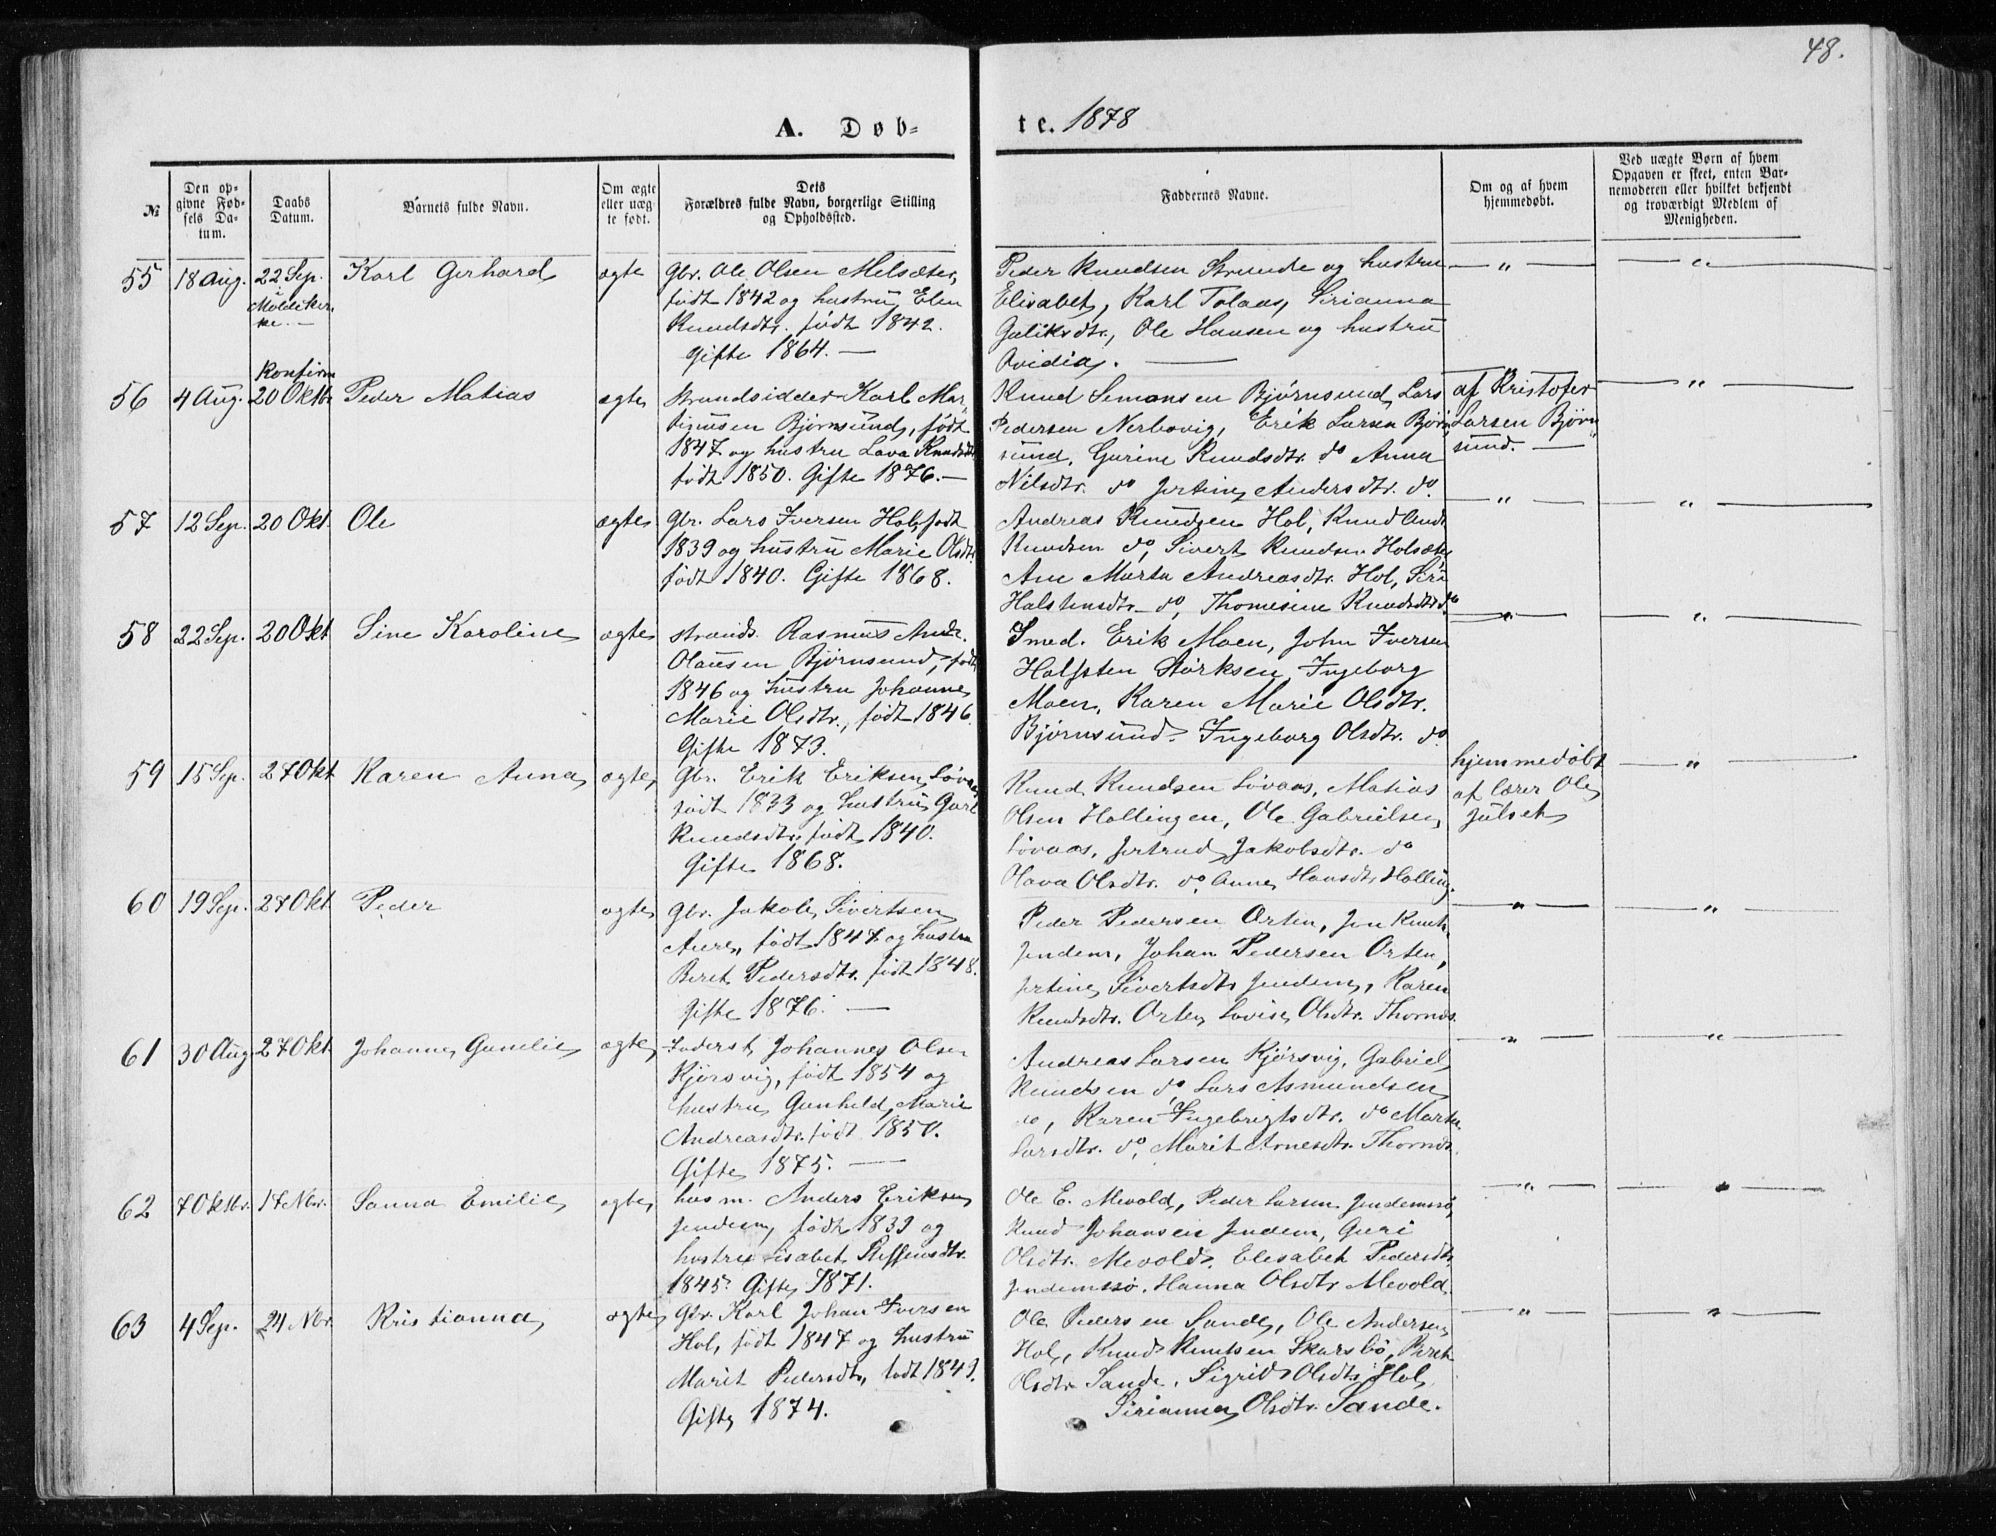 48.
A. Døb= te. 1878
№
Den op=
givne Fød=
sels Da=
tum.
Daabs
Datum.
Barnets fulde Navn.
Om ægte
eller uæg=
te født.
Dets
Forældres fulde Navn, borgerlige Stilling
og Opholdssted.
Faddernes Navne.
Om og af hvem
hjemmedøbt.
Ved uægte Børn af hvem
Opgaven er skeet, enten Bar=
nemoderen eller hvilket bekjendt
og troværdigt Medlem af
Menigheden.
55 18 Aug. 22 Sep. i Moldekir ke. — Karl Gerhard ægte
Gbr. Ole Olsen Melsæter,
født 1842 og hustru Elen
Knudsdtr. født 1842.
Gifte 1864. —
Peder Knudsen Strande og hustru
Elisabet, Karl Tolaas, Sirianna
Guliksdtr., Ole Hansen og hustru
Ovidia. —
— " — — " —
56 4 Aug. Konfirm 20 Oktbr Peder Matias ægte
Strandsidder Karl Mar
tinusen Bjørnsund, født
1847 og hustru Lava Knudsdtr
født 1850. Gifte 1876. —
Knud Simonsen Bjørnsund, Lars
Pedersen Nerbøvig, Erik Larsen Bjørn
sund, Gurine Knudsdtr. do Anna
Nilsdtr. do Jertine Andersdtr. do.
af Kristofer
Larsen Bjørn
sund. —
— " —
57 12 Sep. 20 Okt. Ole ægte
Gbr. Lars Iversen Hol, født
1839 og hustru Marie Olsdtr.
født 1840. Gifte 1868.
Andreas Knudsen Hol, Knud And.
Knudsen do, Sivert Knudsen Holsæter
Ane Marta Andreasdtr. Hol, Siri
Halstensdtr. do, Thomesine Knudsdtr do
— " — — " —
58 22 Sep. 20 Okt Sine Karoline ægte
Strands. Rasmus Andr.
Olausen Bjørnsund, født
1846 og hustru Johanne
Marie Olsdtr., født 1846.
Gifte 1873.
Smed. Erik Moen, John Iversen
Halsten Størksen Ingeborg
Moen, Karen Marie Olsdtr.
Bjørnsund. Ingeborg Olsdtr. do.
— " — — " —
59 15 Sep. 27 Okt Karen Anna ægte
Gbr. Erik Eriksen Løvaas
født 1833 og hustru Guri
Knudsdtr. født 1840.
Gifte 1868.
Knud Knudsen Løvaas, Matias
Olsen Hollingen, Ole Gabrielsen
Løvaas, Jertrud Jakobsdtr. do
Olava Olsdtr. do. Anne Hansdtr Holling.
hjemmedøbt
af lærer Ole
Julset
— " —
60 19 Sep. 27 Okt Peder ægte
Gbr. Jakob Sivertsen
Aure, født 1847 og hustru
Beret Pedersdtr. født 1848.
Gifte 1876. —
Peder Pedersen Orten, Jon Knuts.
Jendem, Johan Pedersen Orten,
Jertine Sivertsdtr Jendem, Karen
Knudsdtr. Orten Lovise Olsdtr. Thornæs.
— " — — " —
61 30 Aug 27 Okt. Johanne Gunelie ægte
Inderst Johannes Olsen
Kjørsvig, født 1854 og
hustru Gunhild Marie
Andreasdtr. født 1850.
Gifte 1875. —
Andreas Larsen Kjørsvig, Gabriel
Knudsen do, Lars Asmundsen
do, Karen Ingebrigtsdtr. do Marta
Larsdtr. do, Marit Arnesdtr. Thornæs.
— " — — " —
62 7 Oktbr. 17 Nbr. Sanna Emilie ægte
husm. Anders Eriksen
Jendem, født 1839 og
hustru Lisabet Steffensdtr.
1845. Gifte 1871.
Ole E. Mevold, Peder Larsen Jendemssø,
Knud Johansen Jendem, Guri
Olsdtr. Mevold, Elisabet Pedersdtr.
Jendemssø. Hanna Olsdtr Mevold.
— " — — " —
63 4 Sep. 24 Nbr. Kristianna ægte
Gbr. Karl Johan Iversen
Hol, født 1847 og hustru
Marit Pedersdtr, født 1849.
Gifte 1874.
Ole Pedersen Sande, Ole Andersen
Hol, Knud Knutsen Skarsbø, Beret
Olsdtr. Sande, Sigrid Olsdtr Hol,
Sirianna Olsdtr. Sande.
— " — — " —